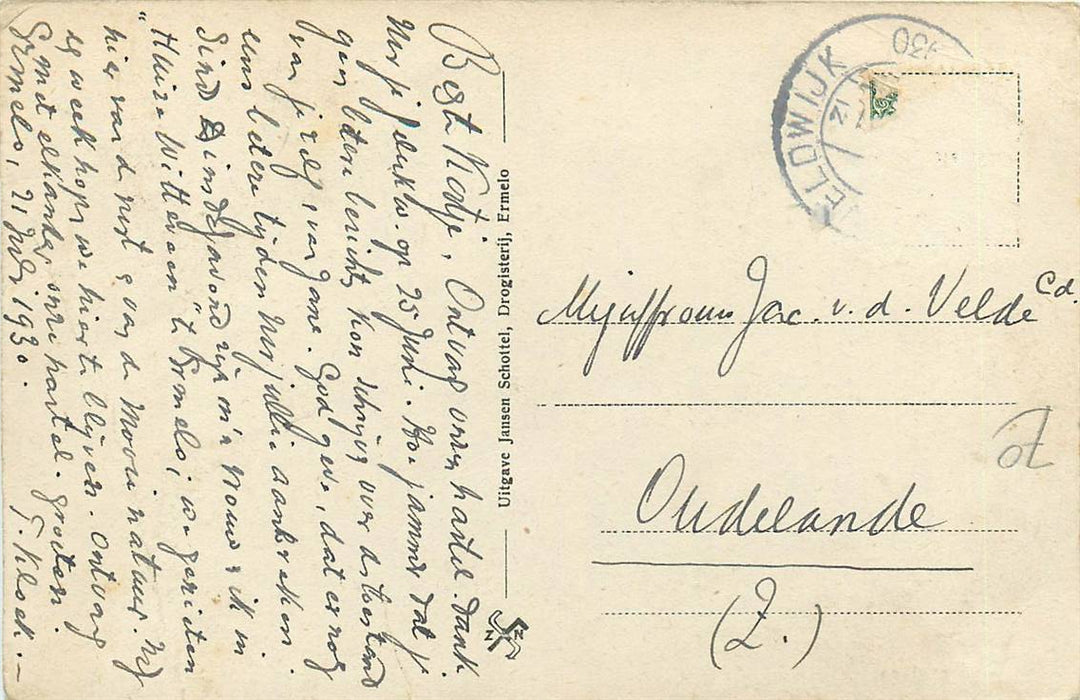 Beste Kootje, Ontvang onzen hartel. dank
voor je gelukw. op 25 Juni. Hoe jammer dat je
geen betere bericht kon schrijven over de toestand
van je zelf, van Jane. God geve, dat er nog
eens betere tijden voor jullie aanbreken.
Sind Dinsdagavond zijn m'n vrouw & ik in
"Huize Witteveen" te Ermelo; we genieten
hier van de rust & van de mooie natuur. Nog
een week hopen we hier te blijven. Ontvang
met elkander onze hartel. groeten.
Ermelo, 21 Juli 1930.
Uitgave Jansen Schottel, Drogisterij, Ermelo
VELDWIJK
930
Mejuffrouw Jac. v. d. Velde Cd.
Oudelande
(Z.)